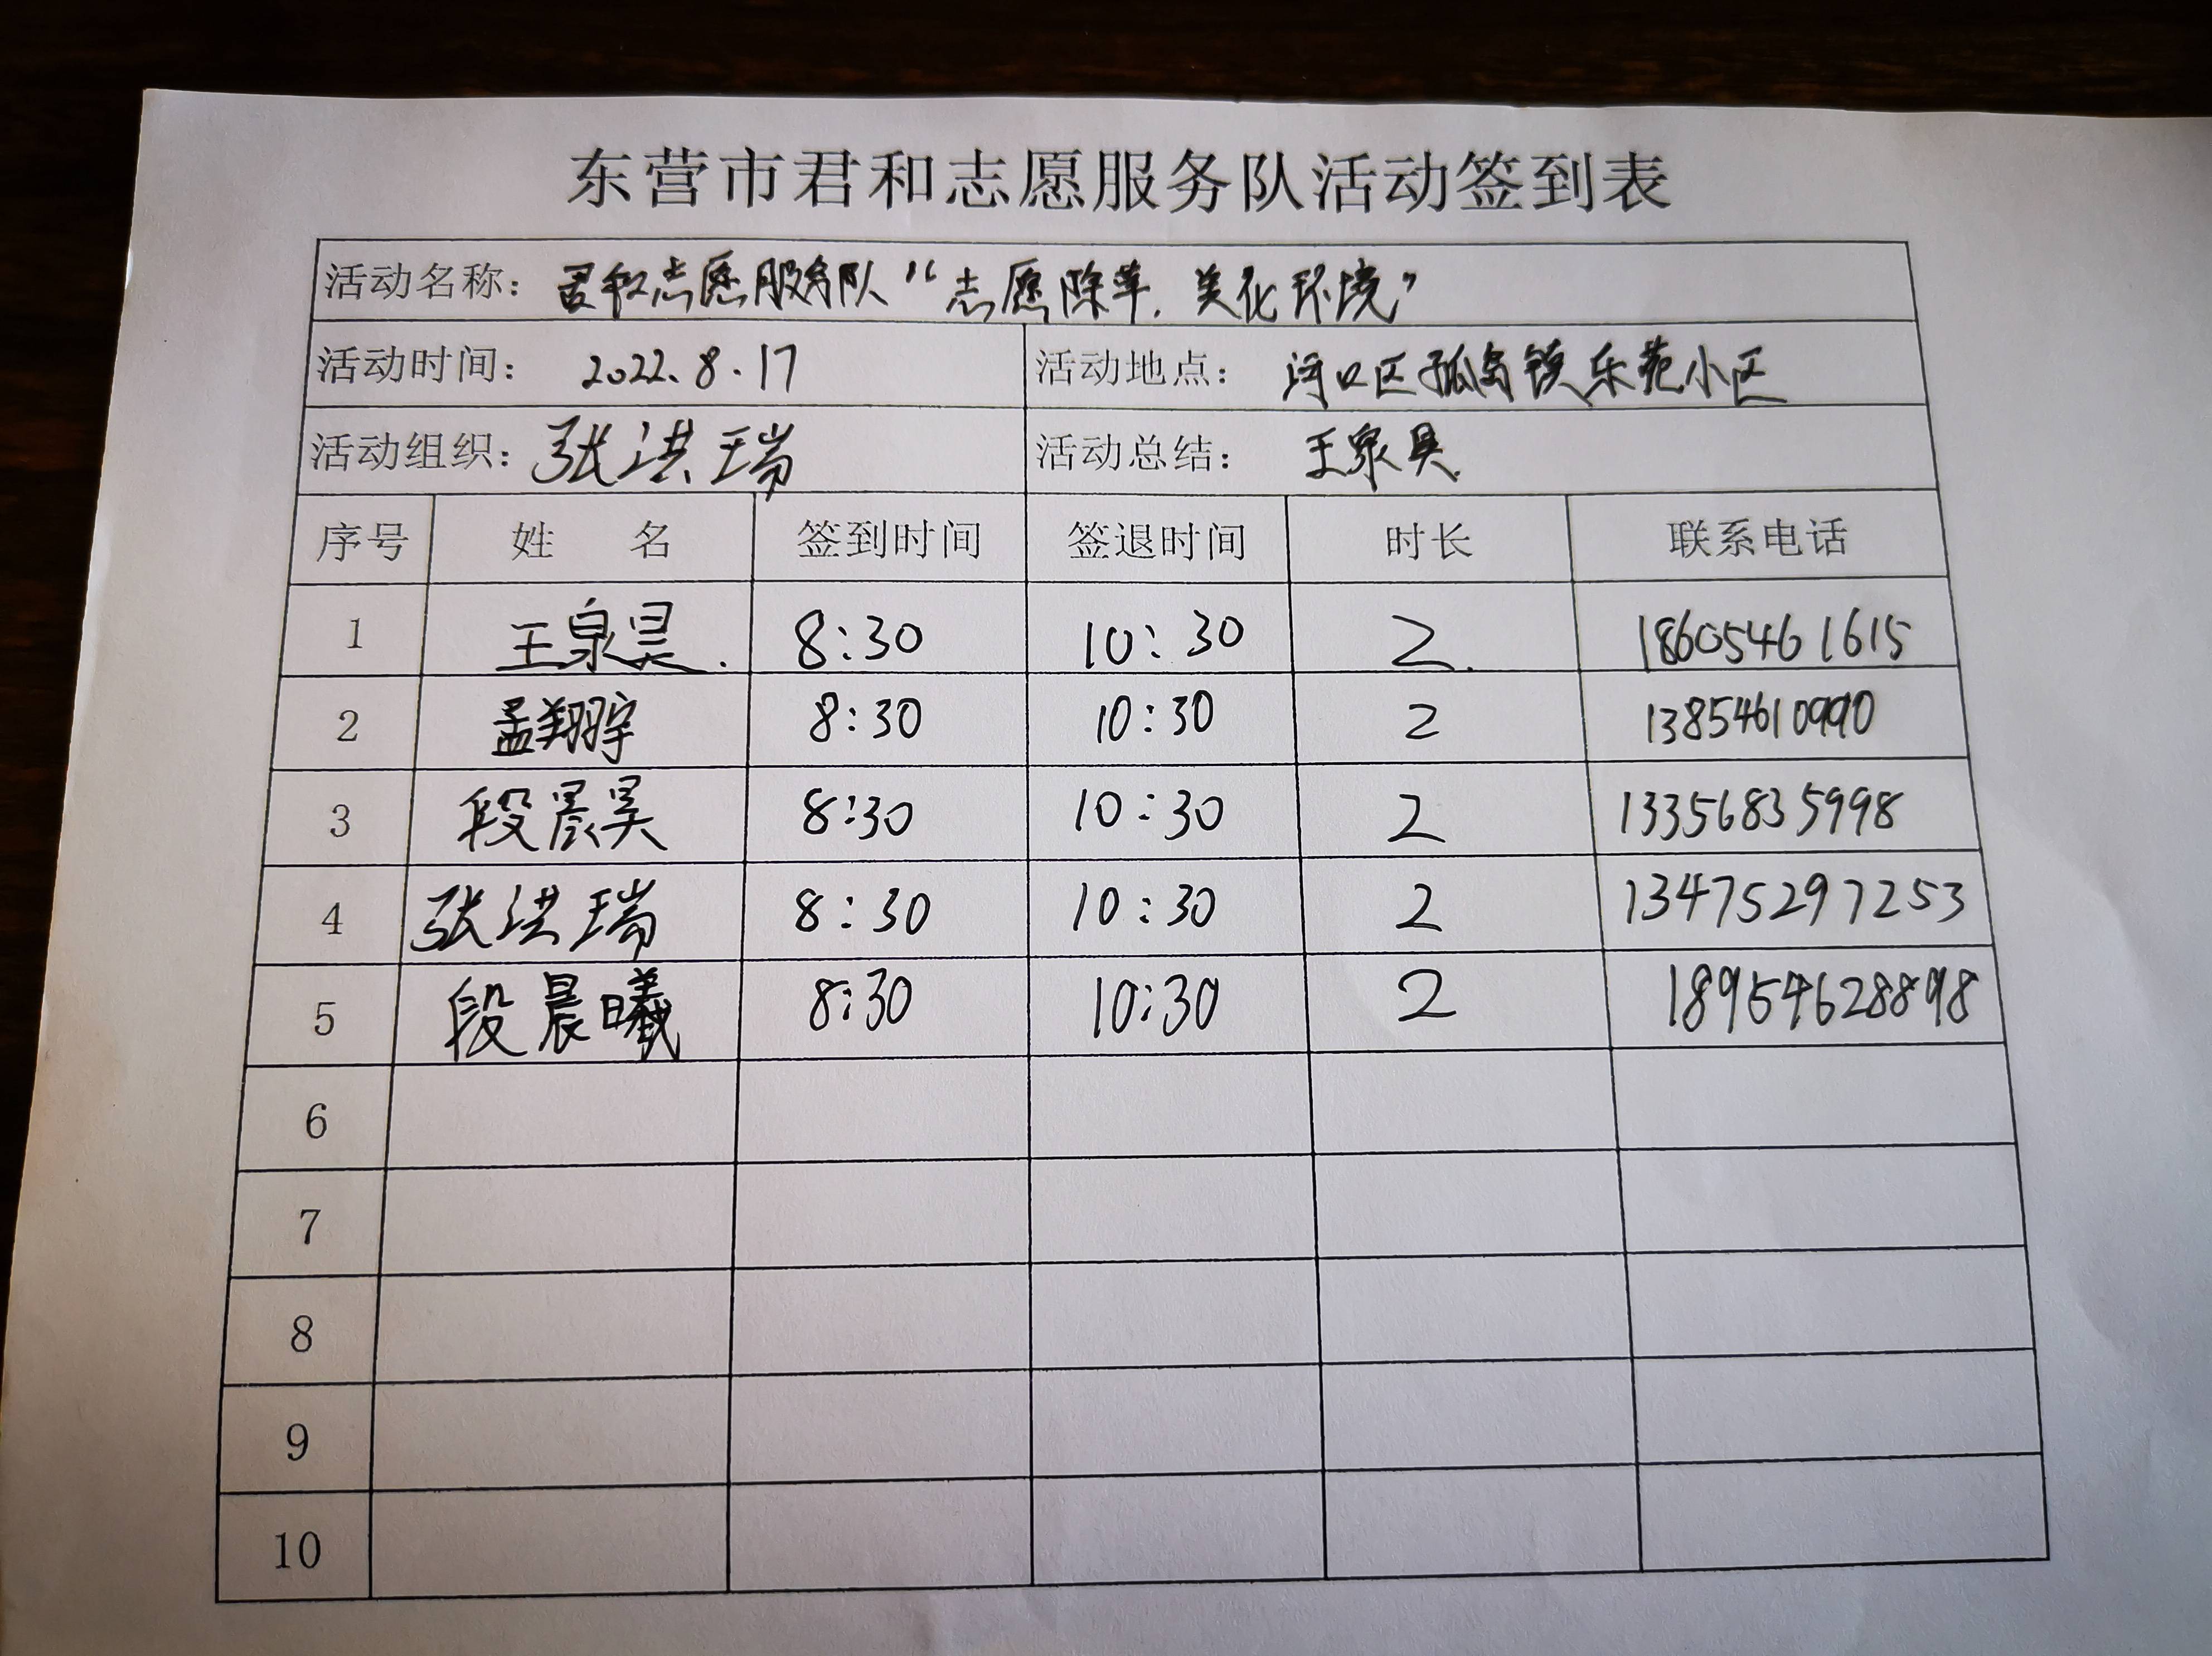 东营市君和志愿服务队活动签到表
活动名称: 君和志愿服务队“志愿除草,美化环境”
活动时间: 2022.8.17 活动地点: 河口区孤岛镇乐苑小区
活动组织: 张洪瑞 活动总结: 王泉昊
序号 姓 名 签到时间 签退时间 时长 联系电话
1 王泉昊. 8:30 10:30 2. 18605461615
2 孟翔宇 8:30 10:30 2 13854610990
3 段晨昊 8:30 10:30 2 13356835998
4 张洪瑞 8:30 10:30 2 13475297253
5 段晨曦 8:30 10:30 2 18954628898
6
7
8
9
10